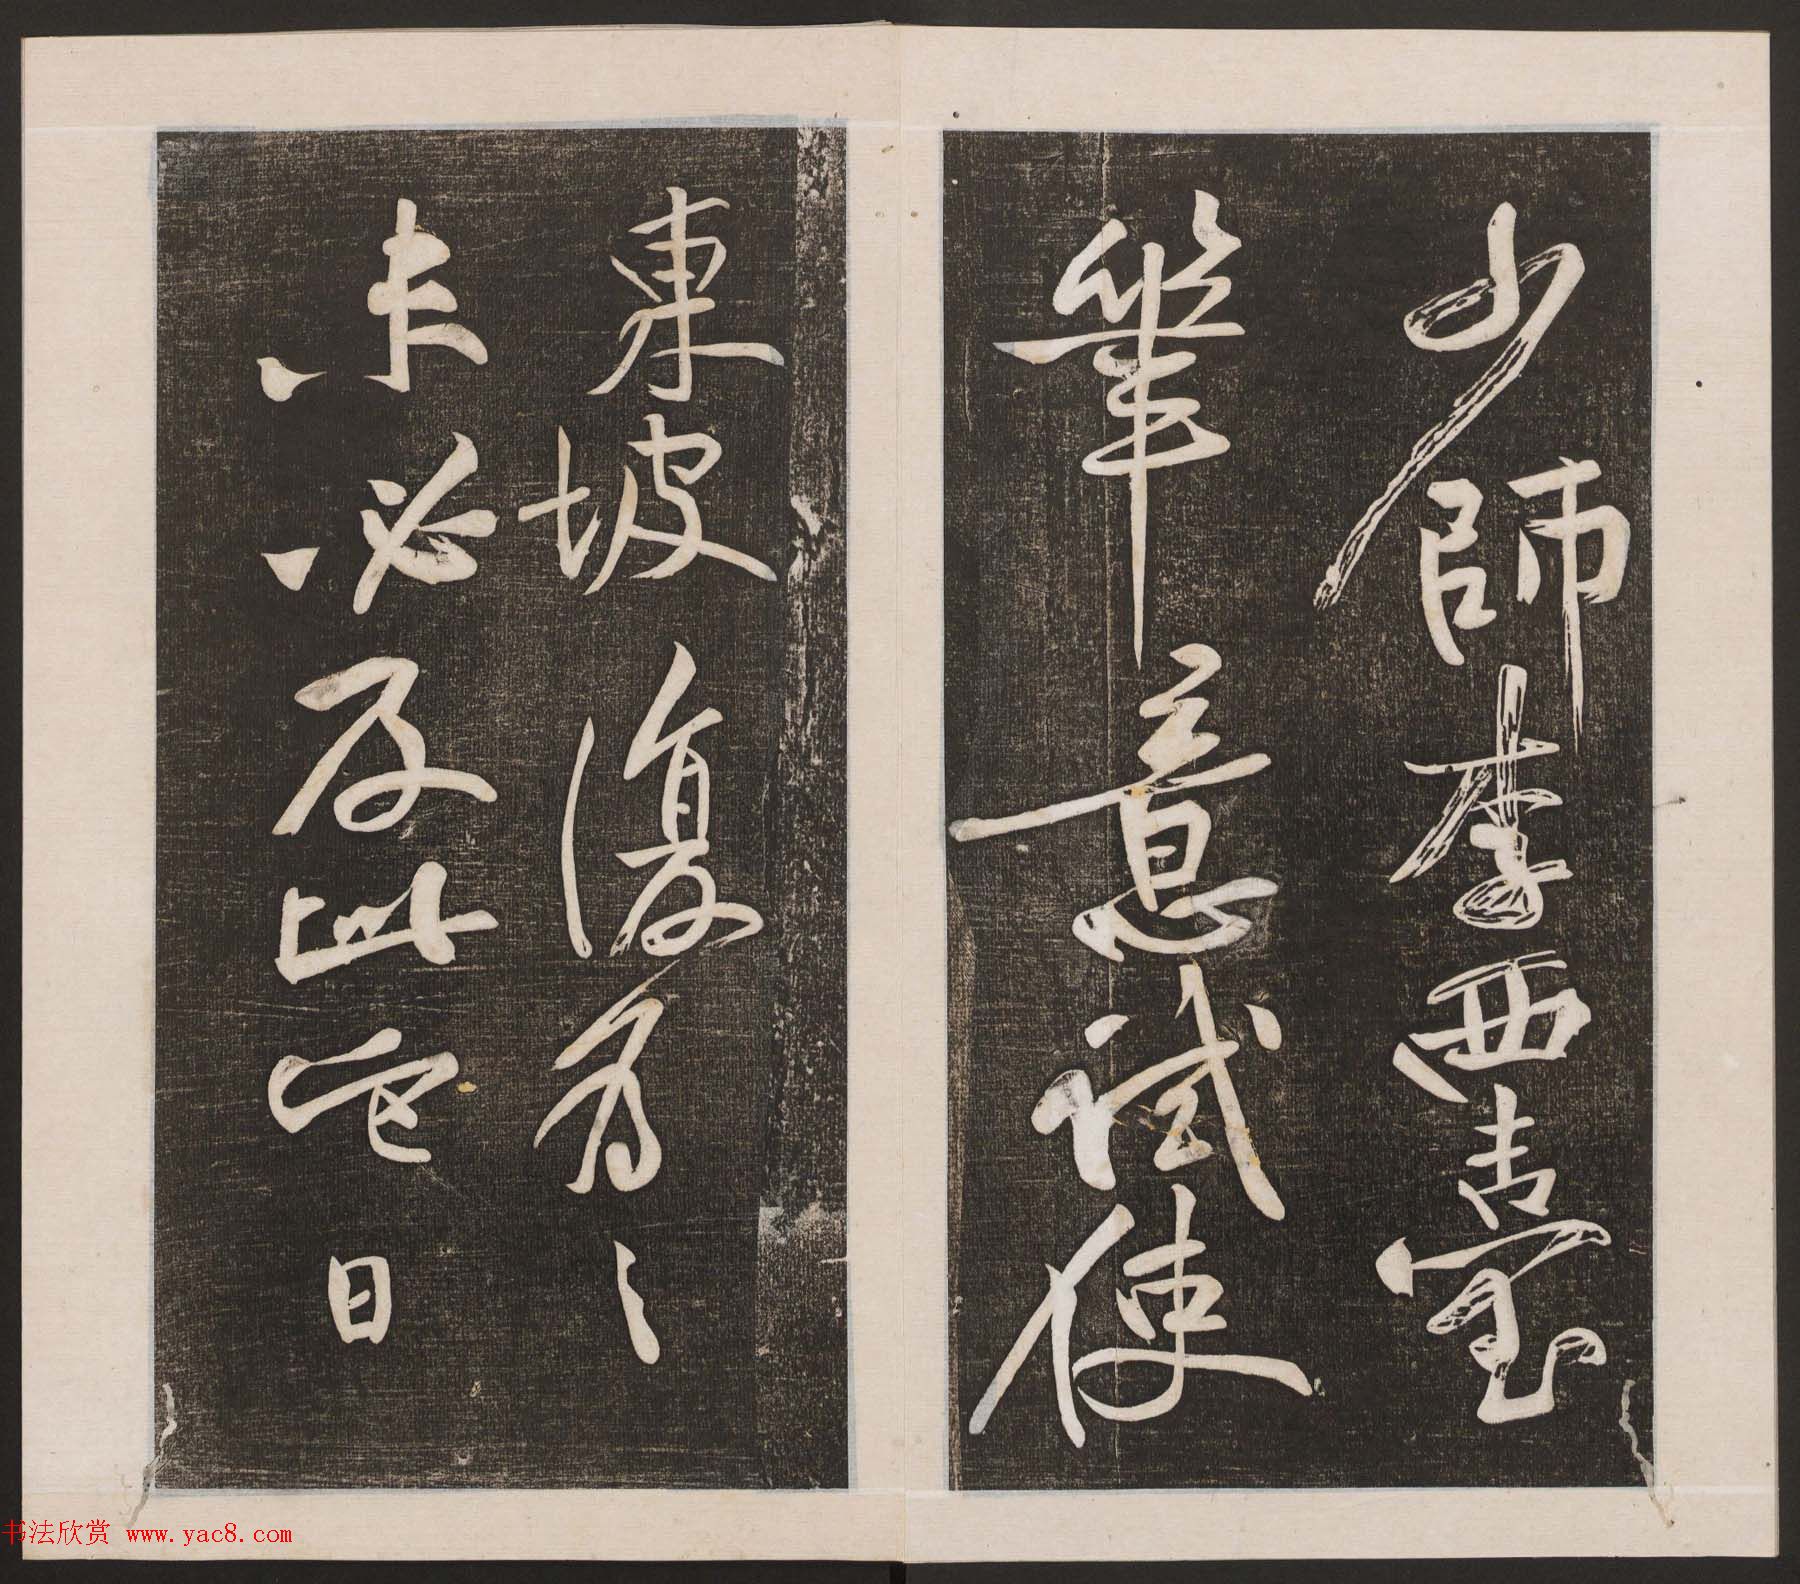 少師李西臺
筆意試使
東坡復為之
未必及此它日
书法欣赏 www.yac8.com